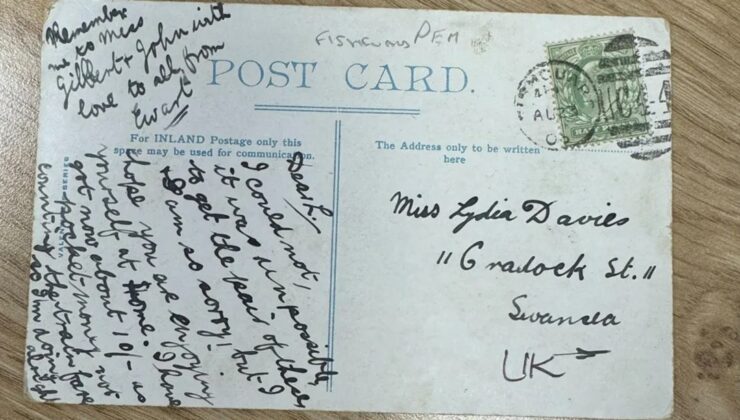 Remember
me to Miss
Gilbert + John with
love to all from
Ewart
FISHGUARD PEM
POST CARD.
For INLAND Postage only this
space may be used for communication.
The Address only to be written
here
Dear L/
I could not,
it was impossible
to get the pair of these
+ I am so sorry! but I
hope you are enjoying
yourself at home. I have
got now about 10/- as
pocket-money not
counting the train fare
so I'm doing
alright
Miss Lydia Davies
"Cradock St."
Swansea
UK
AU